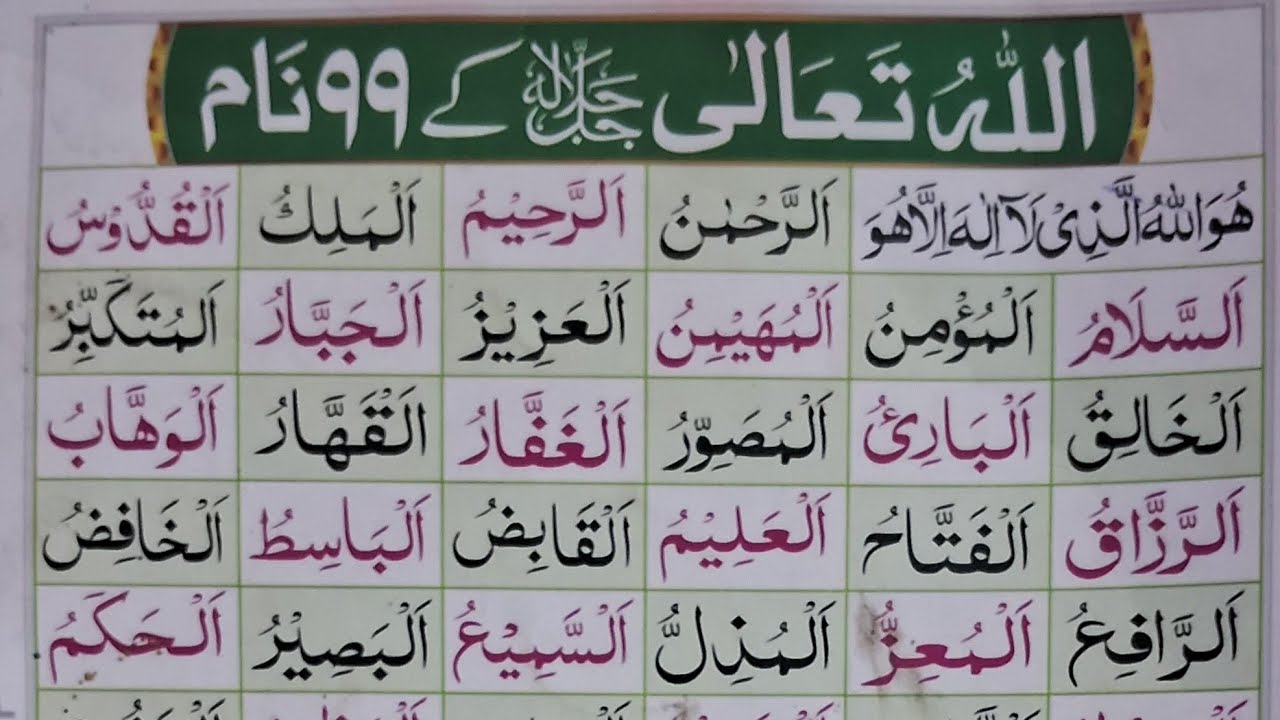 اللّٰهُ تَعَالٰی جل جلالہ کے ۹۹ نَام
هُوَ اللّٰهُ الَّذِیْ لَآ اِلٰهَ اِلَّا هُوَ اَلرَّحْمٰنُ اَلرَّحِیْمُ اَلْمَلِكُ اَلْقُدُّوْسُ
اَلسَّلَامُ اَلْمُؤْمِنُ اَلْمُهَیْمِنُ اَلْعَزِیْزُ اَلْجَبَّارُ اَلْمُتَكَبِّرُ
اَلْخَالِقُ اَلْبَارِئُ اَلْمُصَوِّرُ اَلْغَفَّارُ اَلْقَهَّارُ اَلْوَهَّابُ
اَلرَّزَّاقُ اَلْفَتَّاحُ اَلْعَلِیْمُ اَلْقَابِضُ اَلْبَاسِطُ اَلْخَافِضُ
اَلرَّافِعُ اَلْمُعِزُّ اَلْمُذِلُّ اَلسَّمِیْعُ اَلْبَصِیْرُ اَلْحَكَمُ